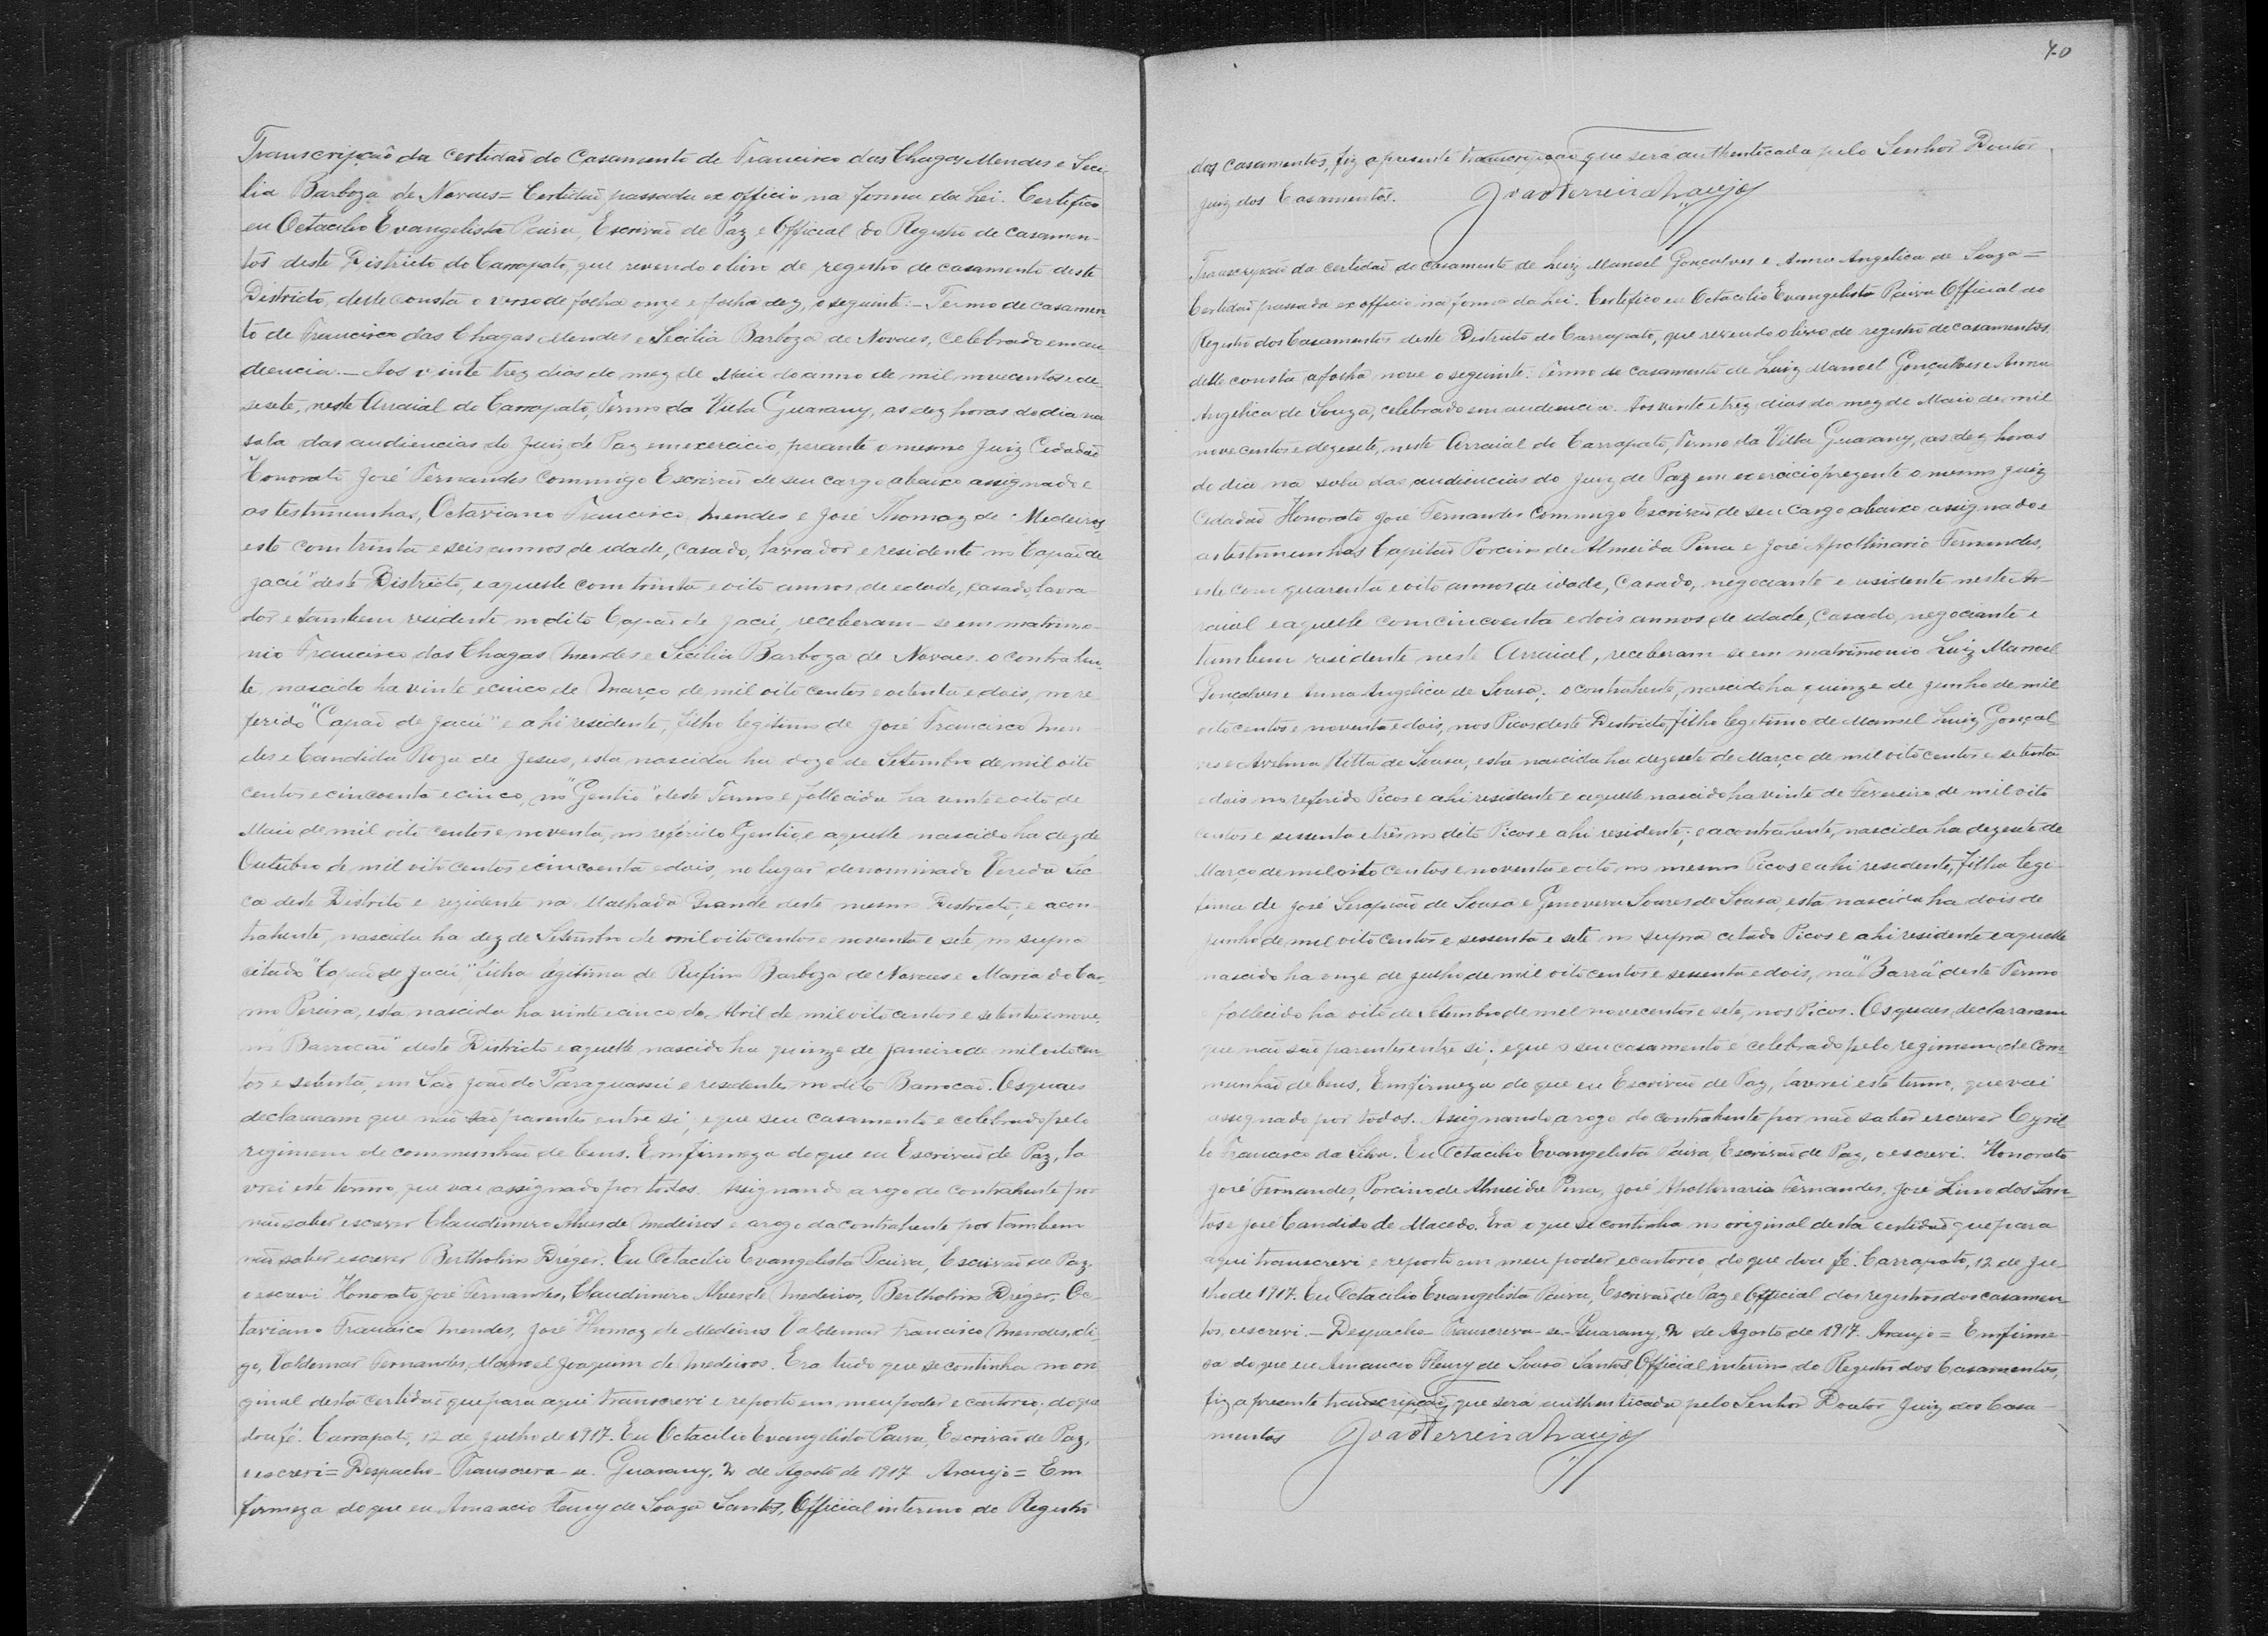 Transcripção da certidão do Casamento de Francisco das Chagas Mendes e Seci-
lia Barboza de Novaes = Certidão passada ex officio na forma da Lei. Certifico
eu Octacilio Evangelista Paiva, Escrivão de Paz e Official do Registro de Casamen-
tos deste Districto do Carrapato, que revendo o livro de registro de casamento deste
Districto, delle consta o verso de folha onze e folha dez, o seguinte: - Termo de casamen-
to de Francisco das Chagas Mendes e Secilia Barboza de Novaes, celebrado em au
diencia. - Aos vinte trez dias do mez de Maio do anno de mil novecentos e de-
sesete, neste Arraial do Carrapato, Termo da Villa Guarany, as dez horas do dia na
sala das audiencias do Juiz de Paz em exercicio, perante o mesmo Juiz Cidadão
Honorato José Fernandes Commigo Escrivão de seu cargo abaixo assignado e
as testimunhas, Octaviano Francisco Mendes e José Thomaz de Medeiros
este com trinta e seis annos de idade, casado, lavrador e residente no Capão de
Jacú" deste Districto, e aquelle com trinta e oito annos de edade, casado, lavra-
dor e tambem residente no dito Capão de Jacú, receberam-se em matrimo-
nio Francisco das Chagas Mendes e Secilia Barboza de Novaes. o contrahen-
te, nascido ha vinte e cinco de Março de mil oito centos e oitenta e dois, no re
ferido "Capão de Jacú" e ahi residente, filho legitimo de José Francisco Men-
des e Candida Roza de Jesus, esta nascida ha doze de Setembro de mil oito
centos e cincoenta e cinco, no "Gentio" deste Termo e fallecida ha vinte e oito de
Maio de mil oito centos e noventa, no referido Gentio, e aquelle nascido ha dez de
Outubro de mil oito centos e cincoenta e dois, no lugar denominado Vereda Sec-
ca deste Districto e rezidente na Malhada Grande deste mesmo Districto; e a con-
trahente, nascida ha dez de Setembro de mil oito centos e noventa e sete, no supra
citado "Capão de Jacú" filha legitima de Rufino Barboza de Novaes e Maria do Car-
mo Pereira, esta nascida ha vinte e cinco de Abril de mil oito centos e setenta e nove,
no "Barrocão" deste Districto e aquelle nascido ha quinze de Janeiro de mil oito cen-
tos e setenta, em São João do Paraguassú e residentes no dito Barrocão. Os quaes
declararam que não são parentes entre si, e que seu casamento e celebrado pelo
regimem de communhão de bens. Em firmeza do que eu Escrivão de Paz, la-
vrei este termo, que vai assignado por todos. Assignando a rogo do contrahente por
não saber escrever Claudimiro Alves de Medeiros e a rogo da contrahente por tambem
não saber escrever Bertholino Dréger. Eu Octacilio Evangelista Paiva, Escrivão de Paz,
o escrevi Honorato José Fernandes, Claudimiro Alves de Medeiros, Bertholino Dréger, Oc-
taviano Francisco Mendes, José Thomaz de Medeiros Valdemar Francisco Mendes, di-
go, Valdemar Fernandes, Manoel Joaquim de Medeiros. Era tudo que se continha no ori
ginal desta certidão que para aqui transcrevi e reporto em meu poder e cartorio; do que
dou fé. Carrapato, 12 de Julho de 1917. Eu Octacilio Evangelista Paiva, Escrivão de Paz,
o escrevi = Despacho - Transcreva-se. Guarany, 2 de Agosto de 1917 Araujo = Em
firmeza do que eu Amancio Fleury de Souza Santos, Official interino do Registro
40
dos casamentos, fiz a presente transcripção que será authenticada pelo Senhor Doutor
Juiz dos Casamentos. João Ferreira Araujo
Transcripção da certidão de casamento de Luiz Manoel Gonçalves e Anna Angelica de Souza =
Certidão passada ex officio na forma da Lei. Certifico eu Octacilio Evangelista Paiva Official do
Registro dos Casamentos deste Districto do Carrapato, que revendo o livro de registro de casamentos,
delle consta a folha nove o seguinte: Termo de casamento de Luiz Manoel Gonçalves e Anna
Angelica de Souza, celebrado em audiencia. Aos vinte e trez dias do mez de Maio de mil
nove centos e dezesete, neste Arraial do Carrapato, Termo da Villa Guarany, as dez horas
do dia na sala das audiencias do Juiz de Paz em exercicio prezente o mesmo Juiz
Cidadão Honorato José Fernandes Commigo Escrivão de seu Cargo abaixo assignado e
as testimunhas Capitão Porcino de Almeida Pina e José Apollinario Fernandes,
este com quarenta e oito annos de idade, Casado, negociante e residente neste Ar-
raial e aquelle com cincoenta e dois annos de idade, Casado, negociante e
tambem residente neste Arraial, receberam-se em matrimonio Luiz Manoel
Gonçalves e Anna Angelica de Sousa; o contrahente, nascido ha quinze de Junho de mil
oito centos e noventa e dois, nos Picos deste Districto, filho legitimo de Manoel Luiz Gonçal-
ves e Avelina Ritta de Sousa, esta nascida ha dezesete de Março de mil oito centos e setenta
e dois no referido Picos e ahi residente e aquelle nascido ha vinte de Fevereiro de mil oito
centos e sessenta e três no dito Picos e ahi residente; e a contrahente, nascida ha dezesete de
Março de mil oito centos e noventa e oito no mesmo Picos e ahi residente, filha legi-
tima de José Serapião de Sousa e Genoveva Soares de Sousa, esta nascida ha dois de
Junho de mil oito centos e sessenta e sete no supra citado Picos e ahi residente e aquelle
nascido ha onze de Julho de mil oito centos e sessenta e dois, na "Barra" deste Termo
e fallecido ha oito de Setembro de mil novecentos e sete, nos Picos. Os quaes declararam
que não são parentes entre si; e que o seu casamento e celebrado pelo regimem de com-
munhão de bens. Em firmeza do que eu Escrivão de Paz, lavrei este termo, que vai
assignado por todos. Assignando a rogo do contrahente por não saber escrever Cyril-
lo Francisco da Silva. Eu Octacilio Evangelista Paiva, Escrivão de Paz, o escrevi. Honorato
José Fernandes, Porcino de Almeida Pina, José Apollinario Fernandes, José Lino dos San-
tos e José Candido de Macedo. Era o que se continha no original desta certidão que para
aqui transcrevi e reporto em meu poder e cartorio, do que dou fé. Carrapato, 12 de Ju-
lho de 1917. Eu Octacilio Evangelista Paiva, Escrivão de Paz e Official dos registros dos casamen-
tos, o escrevi - Despacho - Transcreva-se - Guarany, 2 de Agosto de 1917. Araujo = Em firme-
za do que eu Amancio Fleury de Sousa Santos, Official interino do Registro dos Casamentos,
fiz a presente transcripção, que será authenticada pelo Senhor Doutor Juiz dos Casa-
mentos João Ferreira Araujo